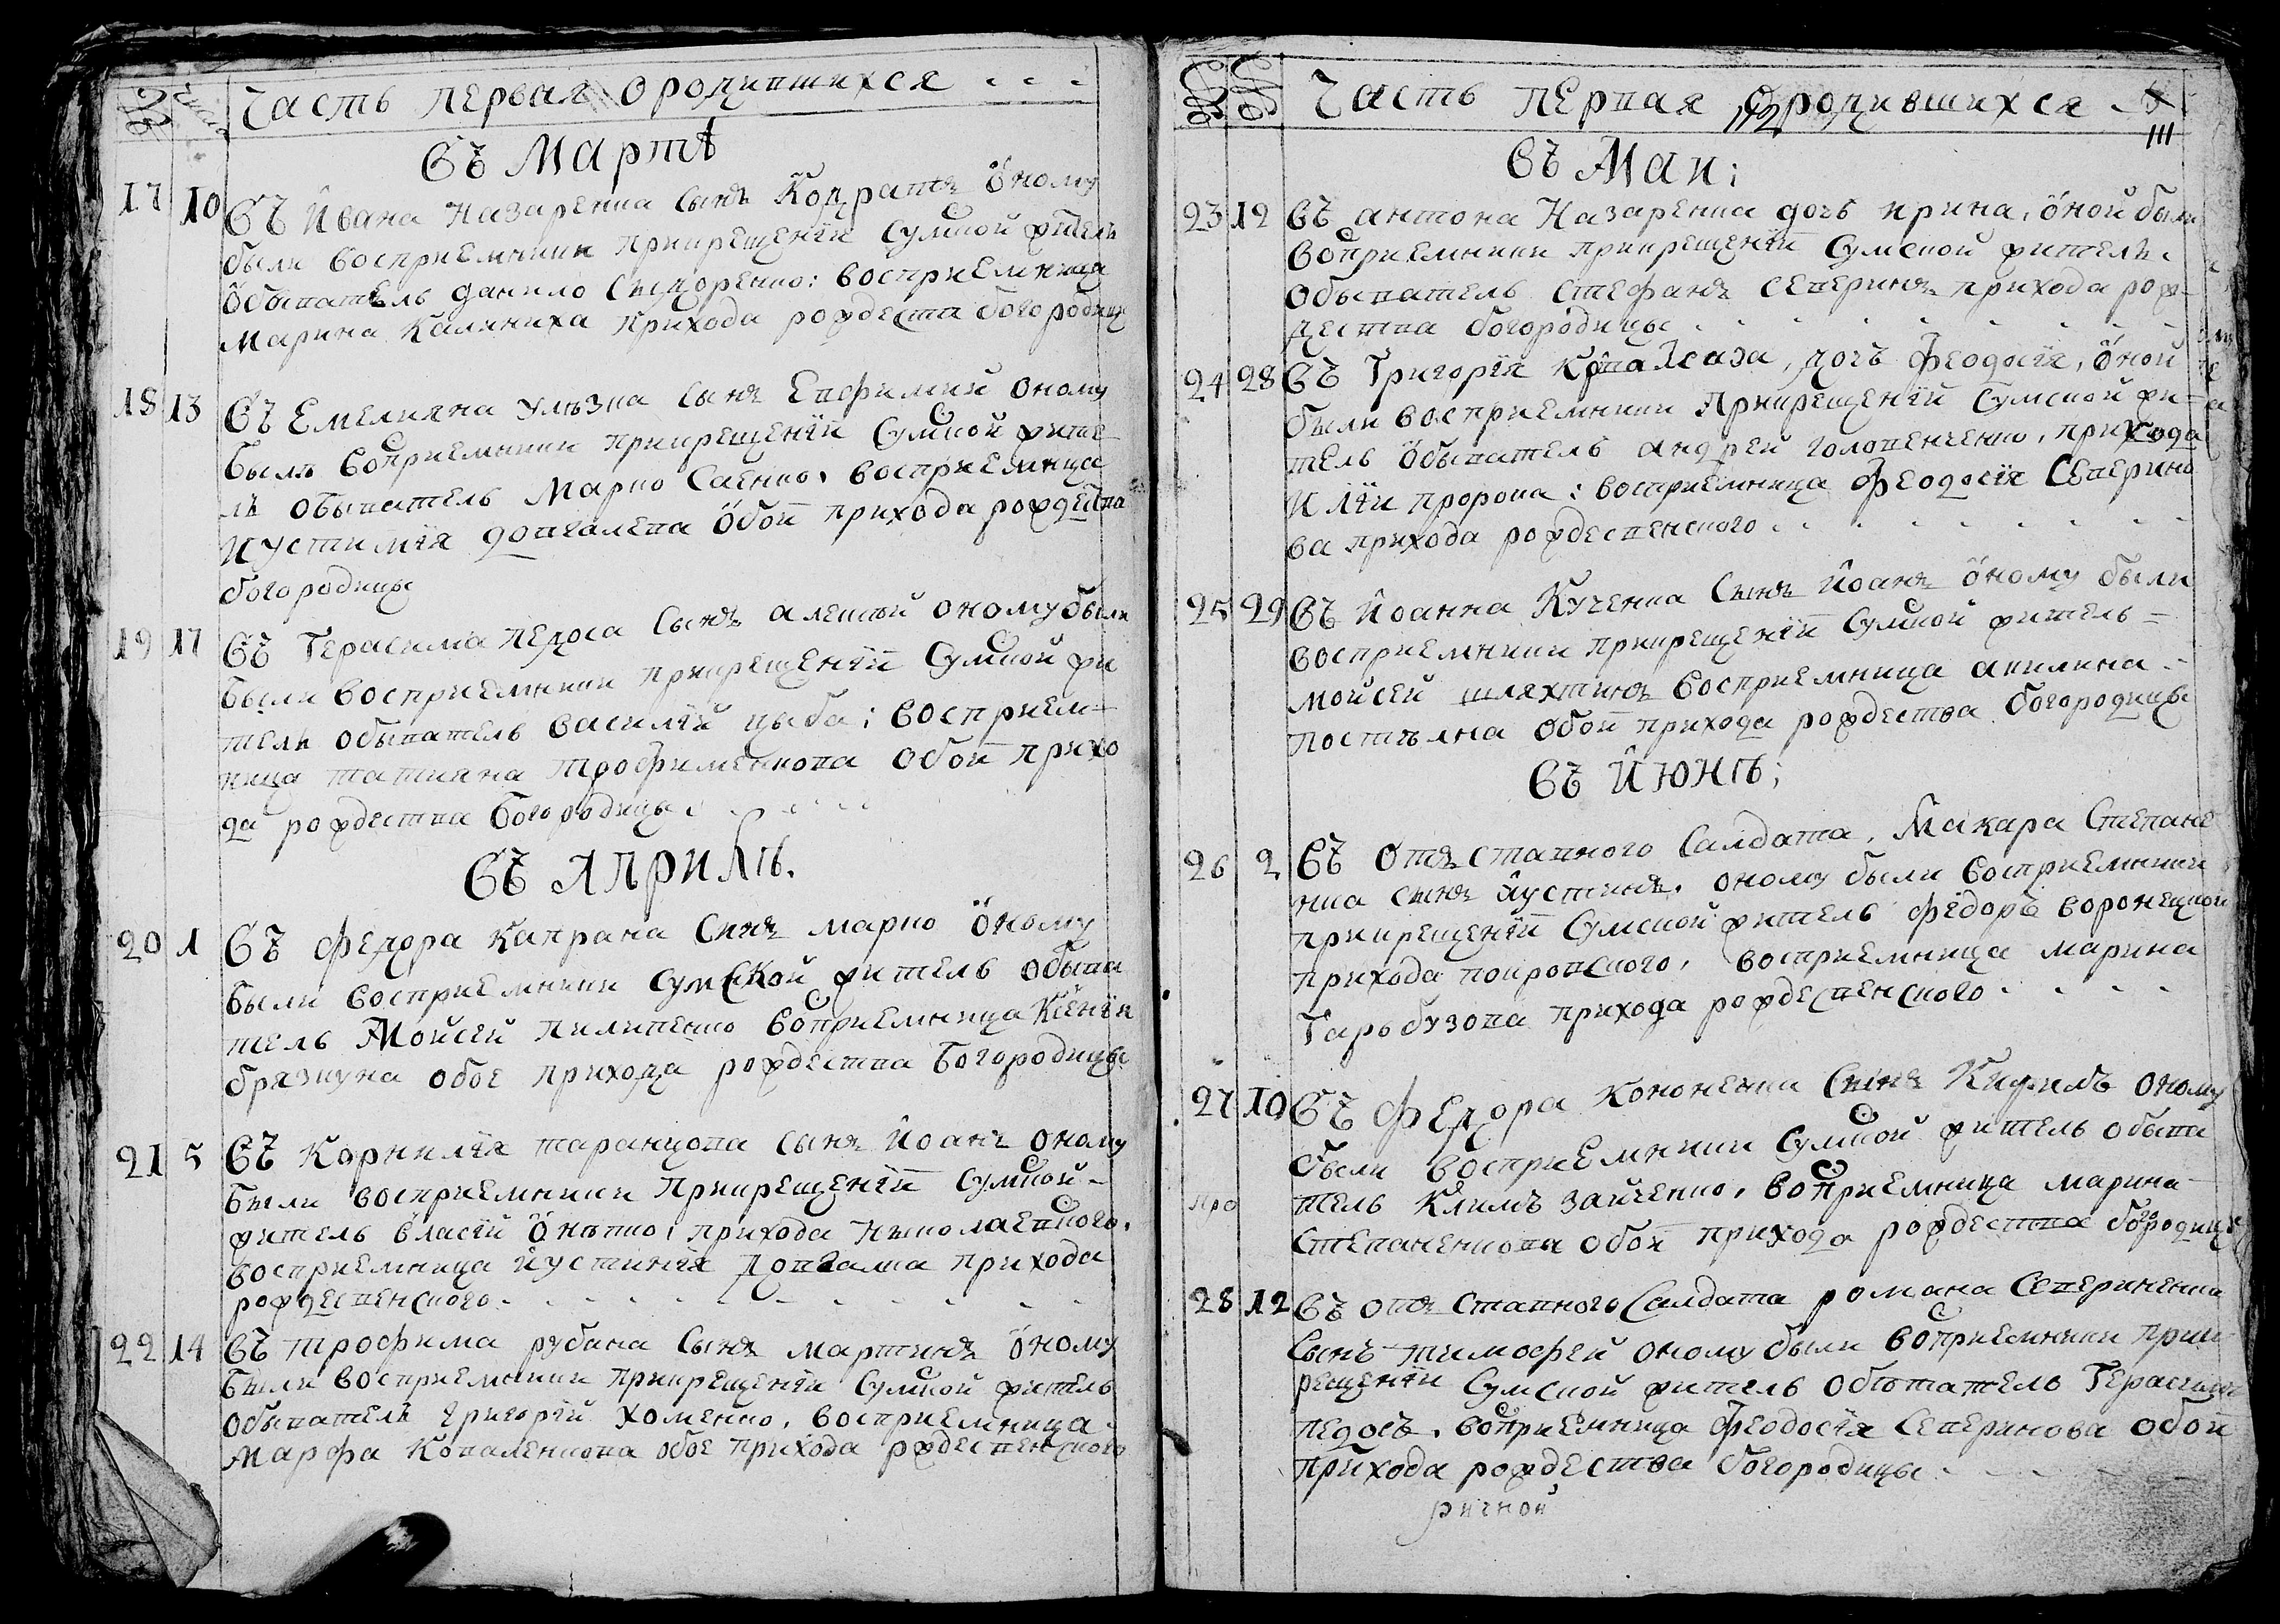 Часть первая о родившихся
Въ Мартѣ
17 10 Въ Ивана Назаренка сынъ Кодратъ оному
были восприемники прикрещенїи Сумской жителъ
обыватель данило Сыдоренко: восприемница
Марина Калиниха прихода рождеста богородицы
18 13 Въ Емелияна сынъ Евфимий оному
былъ восприемники прикрещенїи Сумской жите-
лъ обыватель Марко Саенко, восприемница
Иустимїя довгалева обои прихода рождества
богородицы
19 17 Въ Герасима педоса сынъ алексѣй оному были
были восприемники прикрещенїи Сумской жи
тель обыватель василїй цыба: восприем-
ница татияна трофименкова обои прихо
да рождества богородицы
Въ Априлѣ.
20 1 Въ федора каправа синъ марко оному
были восприемники сумской житель обыва
тель Мойсей пилипенко восприемница Ксенїя
брязкуна обое прихода рождества Богородицы
21 5 Въ Корнилїя таранцова сынъ Иоанъ оному
были восприемники прикрещенїи Сумской
житель власїй прихода николаевского,
восприемница иустинїя довгалка прихода
рождественского
22 14 Въ трофима рубана сынъ мартинъ оному
были восприемники прикрещенїи Сумской житель
обыватель григорїй хоменко, восприемница
Марфа коваленкова обое прихода рождественского
Часть первая о родившихся
112
111
Въ Маи;
23 12 Въ антона Назаренка дочь ирина, оной были
восприемники прикрещенїи Сумской жителъ
обыватель стефанъ северинъ прихода рож-
дества богородицы
24 28 Въ Григорїя дочъ феодосїя, оной
были восприемники прикрещенїи Сумской жи-
тель обыватель андрей голопенченко, прихода
Илїи пророка: восприемница феодосїя Северино
ва прихода рождественского
25 29 Въ Иоанна Кученка Сынъ Иоанъ оному были
восприемники прикрещенїи Сумской житель
мойсей шляхтинъ восприемница акилина
постолна обои прихода рождества богородицы
Въ Июнѣ;
26 2 Въ отъ ставного Салдата, Макара Степане
нка сынъ иустинъ, оному были восприемники
прикрещенїи Сумской житель федоръ воронецкой
прихода покровского, восприемница марина
Гарбузова прихода рождественского
27 10 Въ Федора Кононенки Сынъ оному
были восприемники Сумской житель обыва
тель Климъ зайченко, восприемница марина
Степаненкова обои прихода рождества богородицы
28 12 Въ отъ ставного Салдата романа Севериненка
сынъ тимофей оному были восприемники прик
рещенїи Сумской житель обыватель Герасимъ
педосъ, восприемница феодосїя Северинова обои
прихода рождества богородицы
ричной